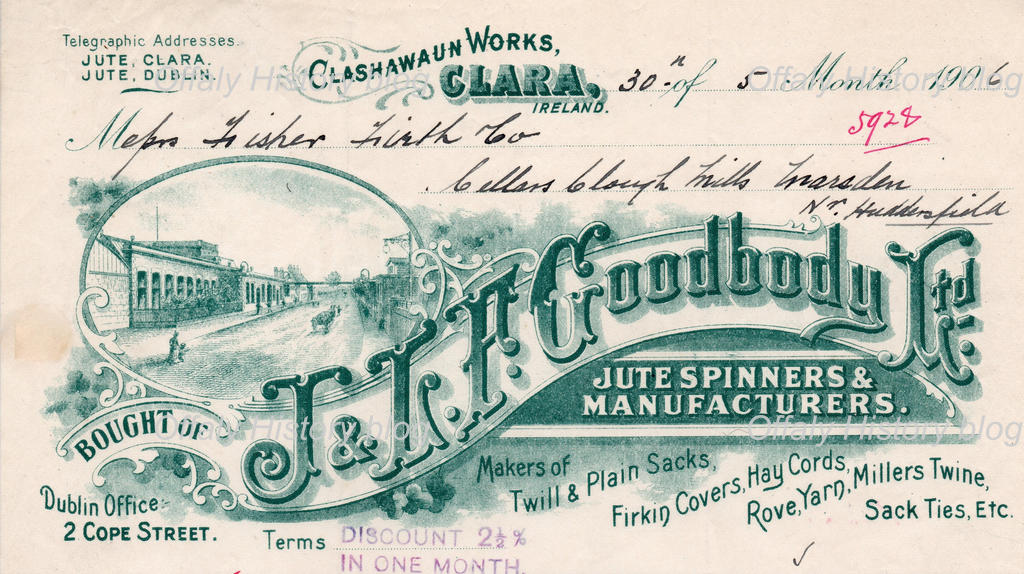 Telegraphic Addresses.
JUTE, CLARA.
JUTE, DUBLIN.
CLASHAWAUN WORKS,
CLARA,
IRELAND.
30th of 5 Month 1906
5928
Messrs Fisher Firth Co
Cellars Clough Mills Marsden
Nr. Huddersfield
BOUGHT OF
J. & L. F. Goodbody Ltd.
JUTE SPINNERS &
MANUFACTURERS.
Makers of
Twill & Plain Sacks,
Firkin Covers, Hay Cords,
Rove, Yarn, Millers Twine,
Sack Ties, Etc.
Dublin Office:-
2 COPE STREET.
Terms DISCOUNT 2½ %
IN ONE MONTH.
Offaly History blog
Offaly History blog
Offaly History blog
Offaly History blog